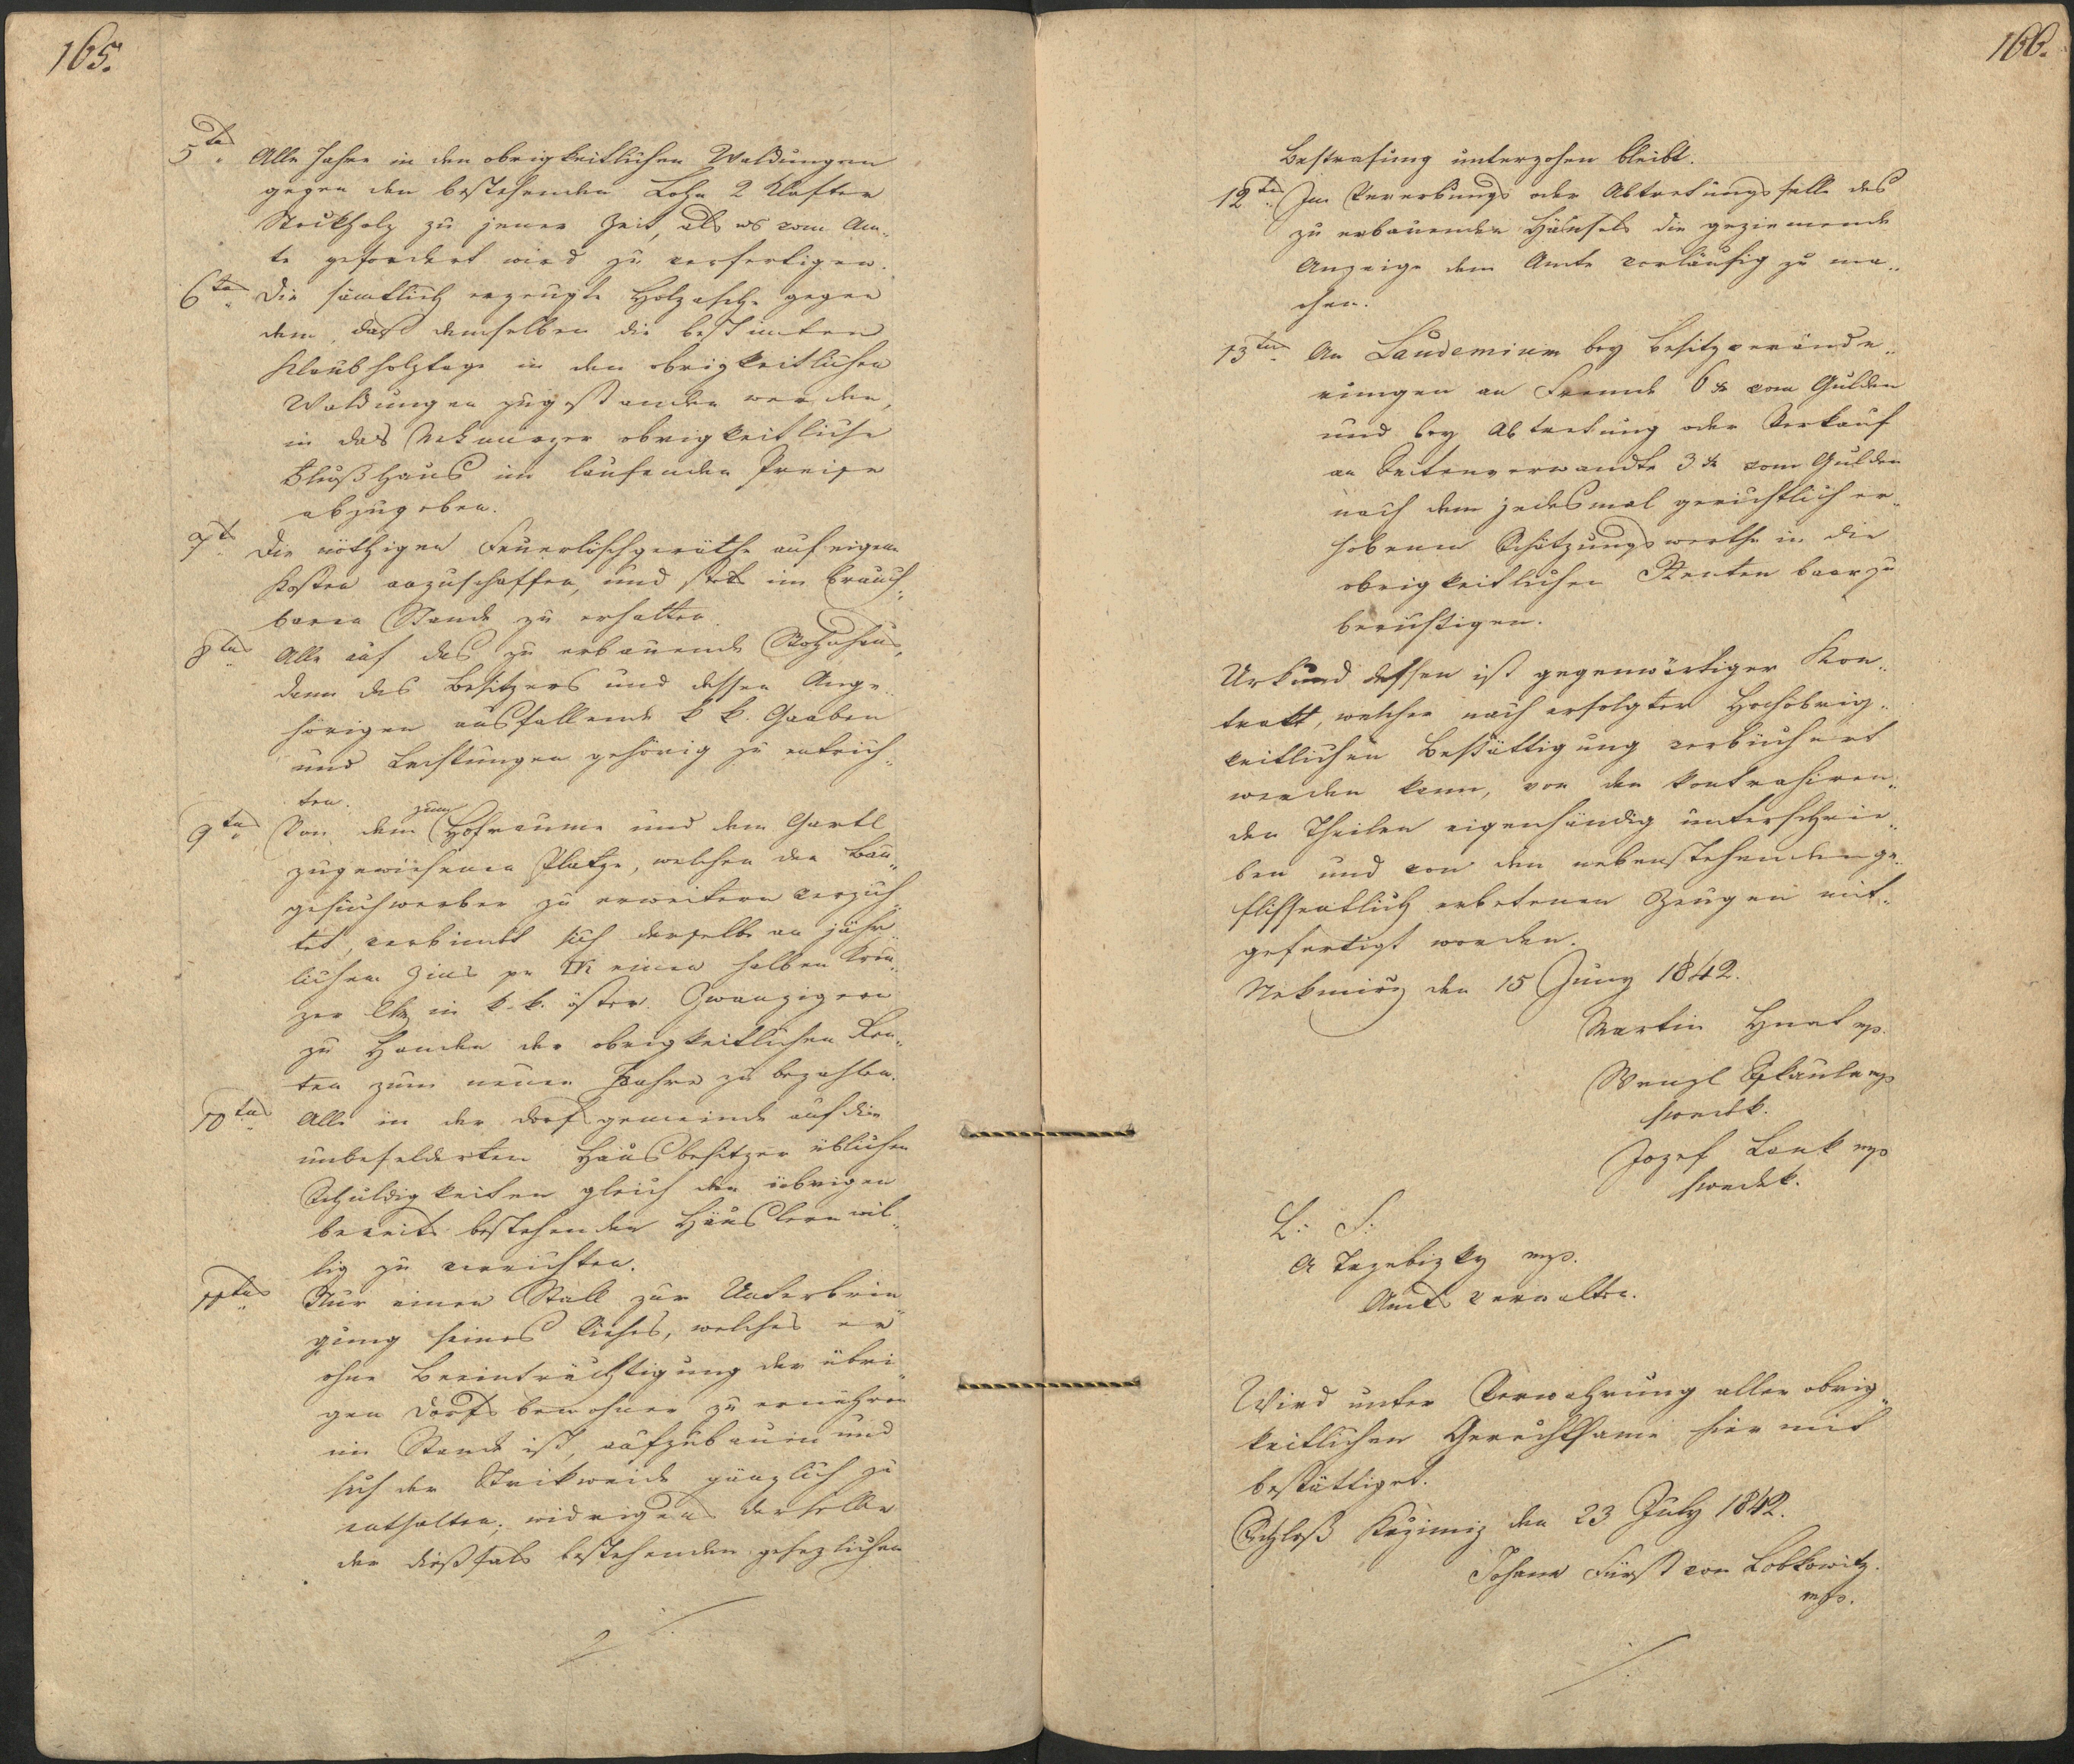 165.
5tens Alle Jahre in den obrigkeitlichen Waldungen
gegen den bestehenden Lohn 2 Klafter
Stockholz zu jener Zeit, als es vom Am„
te gefordert wird zu verfertigen.
6tens Die sämtlich erzeugte Holzasche gegen
dem, daß demselben die bestimten
Klaubholztage in den obrigkeitlichen
Waldungen zugestanden werden,
in das Nekmirzer obrigkeitliche
Flußhaus im laufenden Preise
abzugeben.
7t Die nöthigen Feuerlöschgeräthe auf eigene
Kosten anzuschaffen, und stets im brauch„
baren Stande zu erhalten.
8tens Alle auf das zu erbauende Wohnhaus,
dann des Besitzers und dessen Ange„
hörigen ausfallende k k. Gaaben
und Leistungen gehörig zu entrich„
ten.
9tens Von dem zum Hofraume und dem Gartl
zugewiesenen Platze, welchen der Bau„
gesuchwerber zu erweitern verzich„
tet, verbindet sich derselbe an jähr„
lichen Zins pr einen halben Kreu„
zer in k. k. öster. Zwanzigern
zu Handen der obrigkeitlichen Ren„
ten zum neuen Jahre zu bezahlen.
10tens Alle in der Dorfgemeinde auf die
unbefelderten Hausbesitzer üblichen
Schuldigkeiten gleich den übrigen
bereits bestehenden Häuslern wil„
lig zu verrichten.
11tens Nur einen Stall zur Unterbrin„
gung seines Viehes, welches er
ohne Beeinträchtigung der übri„
gen Dorfsbewohner zu ernähren
im Stande ist, aufzubauen und
sich der Trikweide gänzlich zu
enthalten, widrigens derselbe
der dießfals bestehenden gesezlichen
166.
Bestrafung unterzohen bleibt.
12tens Im Vererbungs oder Abtretungsfalle des
zu erbauenden Häusels die geziemende
Anzeige dem Amte vorläufig zu ma„
chen.
13tens An Laudemium bey Besitzverände„
rungen an Fremde 6 xr vom Gulden
und bey Abtretung oder Verkauf
an Seitenverwandte 3 xr vom Gulden
nach dem jedesmal gerichtlich er„
hobenen Schätzungswerthe in die
obrigkeitlichen Renten baar zu
berichtigen.
Urkund dessen ist gegenwärtiger Kon„
trakt, welcher nach erfolgter Hochobrig„
keitlichen Bestättigung verbüchert
werden kann, von den kontrahiren„
den Theilen eigenhändig unterschrie„
ben und von den nebenstehenden ge„
flissentlich erbetenen Zeugen mit„
gefertigt worden.
Nekmirz den 15 Juny 1842.
Martin Hnat mp.
Wenzl mp
swedek.
Jozef Lank mp
swedek.
L: S:
A Trzebizky mp.
Amts verwalter.
Wird unter Verwahrung aller obrig„
keitlichen Gerechtsame hiermit
bestättiget.
Schloß Kozimiz den 23 July 1842.
Johann Fürst von Lobkowitz.
mp.